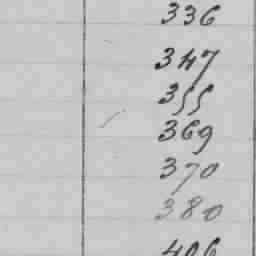 336
347
355
369
370
380
406